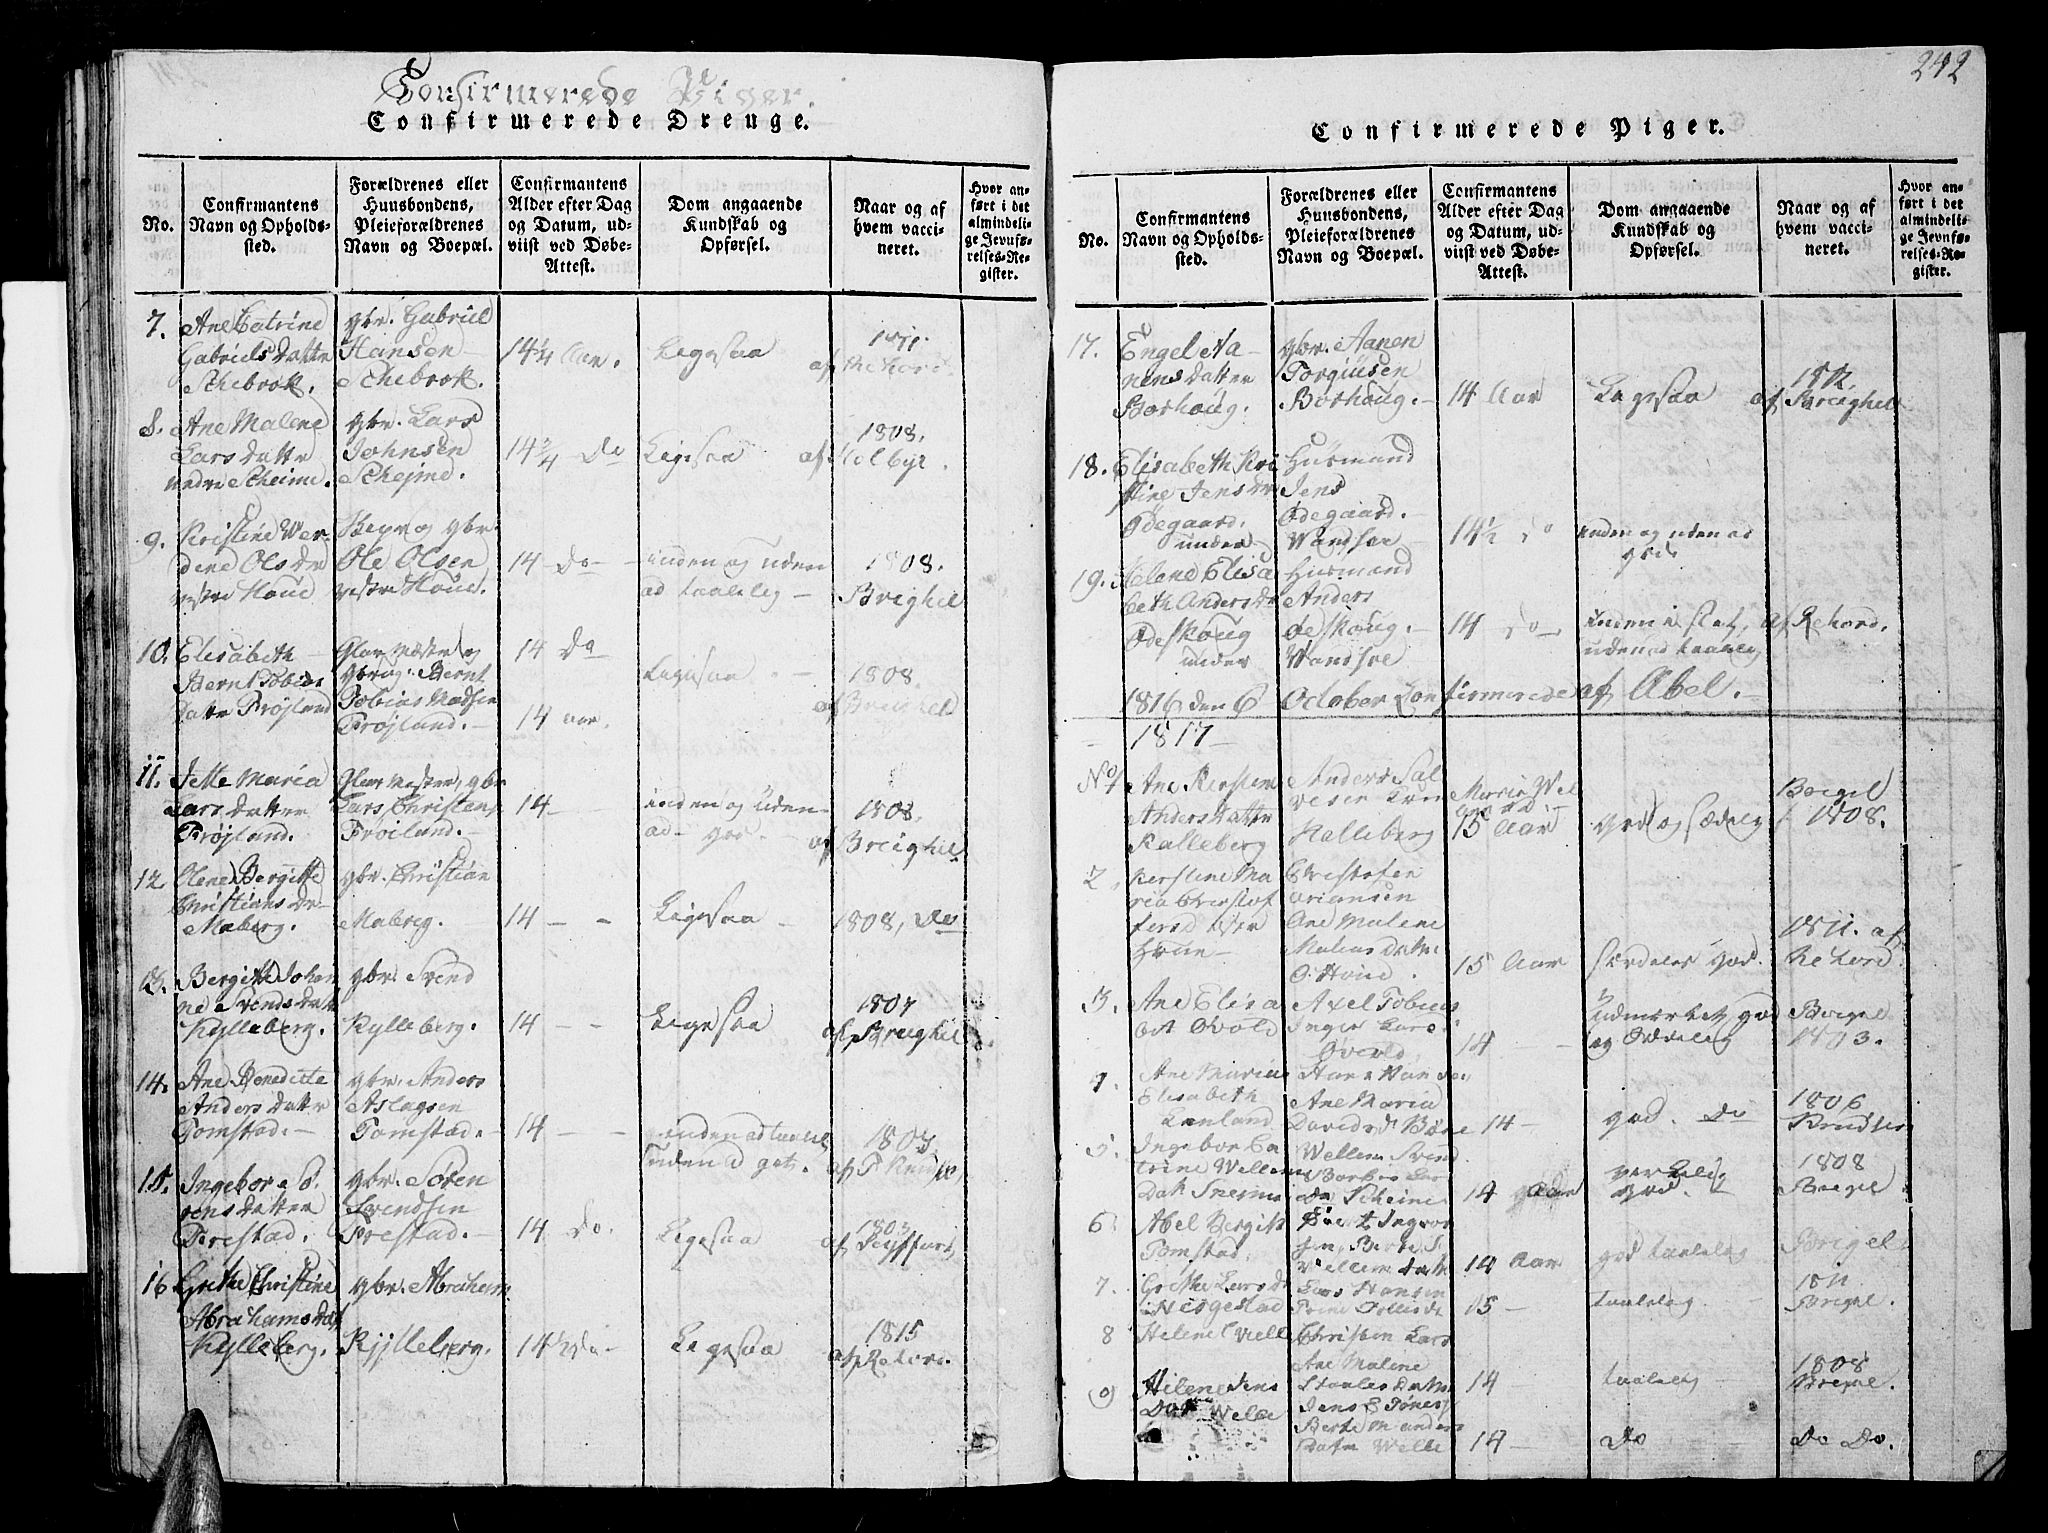 242
Confirmerede Piger.
Confirmerede Drenge.
No.
Confirmantens
Navn og Opholds-
sted.
Forældrenes eller
Huusbondens,
Pleieforældrenes
Navn og Boepæl.
Confirmantens
Alder efter Dag
og Datum, ud-
viist ved Døbe-
Attest.
Dom angaaende
Kundskab og
Opførsel.
Naar og af
hvem vacci-
neret.
Hvor an-
ført i det
almindeli-
ge Jevnfø-
relses-Re-
gister.
7. Ane Catrine
Gabriels datter
Schebrok.
gbr. Gabriel
Hansen
Schebrok.
14¼ Aar.
Ligesaa
1811.
af Rekord.
8. Ane Malene
Lars datter
nedre Scheime.
gbr. Lars
Johnsen
Schejme.
14¾ Do
Ligesaa
1808.
af Holbye.
9. Kristine Wer-
dine Ols dr
vestre Houe
gbr.
Ole Olsen
vestre Houe.
14 - Do -
inden og uden
ad taalelig -
1808.
Brighel
10. Elisabeth
Bernt Tobias
Datter Frøjland
Glarmester og
Bernt
Tobias Madsen
Frøjland.
14 Do
14 Aar.
Ligesaa -
1808.
af Breighel
11. Jette Maria
Lars datter
Frøjland.
Glarmester, gbr
Lars Christens
Frøiland.
14 -
inden og uden
ad god.
1808.
af Breighel
12. Olene Bergitte
Christians dr
Maberg.
gbr. Christian
Maberg.
14 - -
Ligesaa -
1808, Do
13. Bergitte Johan
ne Svends datter
Kylleberg.
gbr. Svend
Kylleberg.
14 - -
Ligesaa
1807
af Breighel
14. Ane Benedicte
Anders datter
Tomstad.
gbr. Anders
Aslagsen
Tomstad.
14 - -
inden ad taalel
uden ad
1807
af
15. Ingebor Sø-
rens datter
Frestad.
gbr. Søren
Svendsen
Frestad.
14 Do.
Ligesaa
1803
af
16 Grethe Christine
Abrahams dat
Kylleberg.
gbr. Abraham
Kylleberg.
14½ do -
Ligesaa
1815
af Rekord.
Confirmerede Piger.
No.
Confirmantens
Navn og Opholds-
sted.
Forældrenes eller
Huusbondens,
Pleieforældrenes
Navn og Boepæl.
Confirmantens
Alder efter Dag
og Datum, ud-
viist ved Døbe-
Attest.
Dom angaaende
Kundskab og
Opførsel.
Naar og af
hvem vacci-
neret.
Hvor an-
ført i det
almindeli-
ge Jevnfø-
relses-Re-
gister.
17. Engel Aa-
nens datter
Borhoug.
gbr. Aanen
Torgiusen
Borhoug. -
14 Aar
Ligesaa
1812.
af Breighel
18. Elisabeth Kri
stine Jens dr
Ødegaard.
under
Husmand
Jens
Ødegaard.
Wandsøe
14½ Do
inden og uden ad
god.
19. Helene Elisa
beth Anders dr
Ødeskoug
under
Husmand
Anders
Ødeskoug.
Wandsøe
14 Do
inden i slet,
uden ad taalelig
af Rekord.
1816 den 6 October Confirmerede af Abel. -
1817
No 1 Ane Kirstine
Anders datter
Kalleberg
Anders Sal
vesen
Kalleberg
15 Aar
god og sædelig
Breigel
1808.
2. Kirstine Ma
ria Christof
fersd
Houe -
Christofer
Ane Malene
Matias datter
Ø. Houe.
15 Aar
særdeles god.
1811. af
Rekord.
3. Ane Elisa
bet Øvold
Axel Tobias
Inger Lars
Øvold
14 -
udmærket god
og sædelig
Breigel
1803.
4. Ane Maria
Elisabeth
Lenland
Ane Maria
Davids d.
14 -
god. Do
1806
Knudsen
5. Ingebor Ca
trine Willem
Dat.
Willem Svend
Scheime
14 Aar
god.
1808
Breigel
6. Abel Bergit
Tomstad.
Ingvor
sen, Berte
Villem datt
14 Aar
god taalelig
Breigel
7. Grethe Lars d
Hergestad
Lars Hansen
15 -
taalelig
1811
Breigel.
8 Helene Welle
Christen Lars
Ane Malene
Staales datter
14 -
taalelig
1808
Breigel.
9 Helene Jens
Dat Welle
Jens
Berte
Datter Welle
14 -
Do
Do Do.